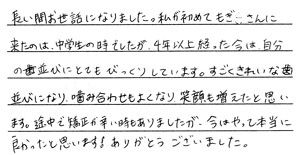 長い間お世話になりました。私が初めてもぎ…さんに
来たのは、中学生の時でしたが、4年以上経った今は、自分
の歯並びにとてもびっくりしています。すごくきれいな歯
並びになり、噛み合わせもよくなり笑顔も増えたと思い
ます。途中で矯正が辛い時もありましたが、今はやって本当に
良かったと思います!ありがとうございました。